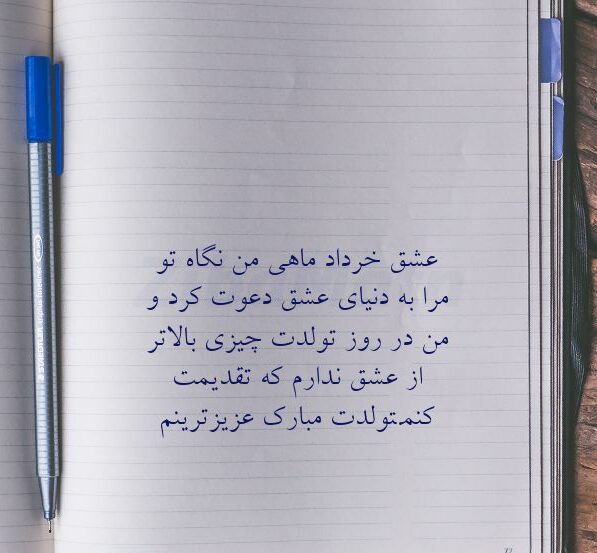 عشق خرداد ماهی من نگاه تو
مرا به دنیای عشق دعوت کرد و
من در روز تولدت چیزی بالاتر
از عشق ندارم که تقدیمت
کنم‌تولدت مبارک عزیزترینم